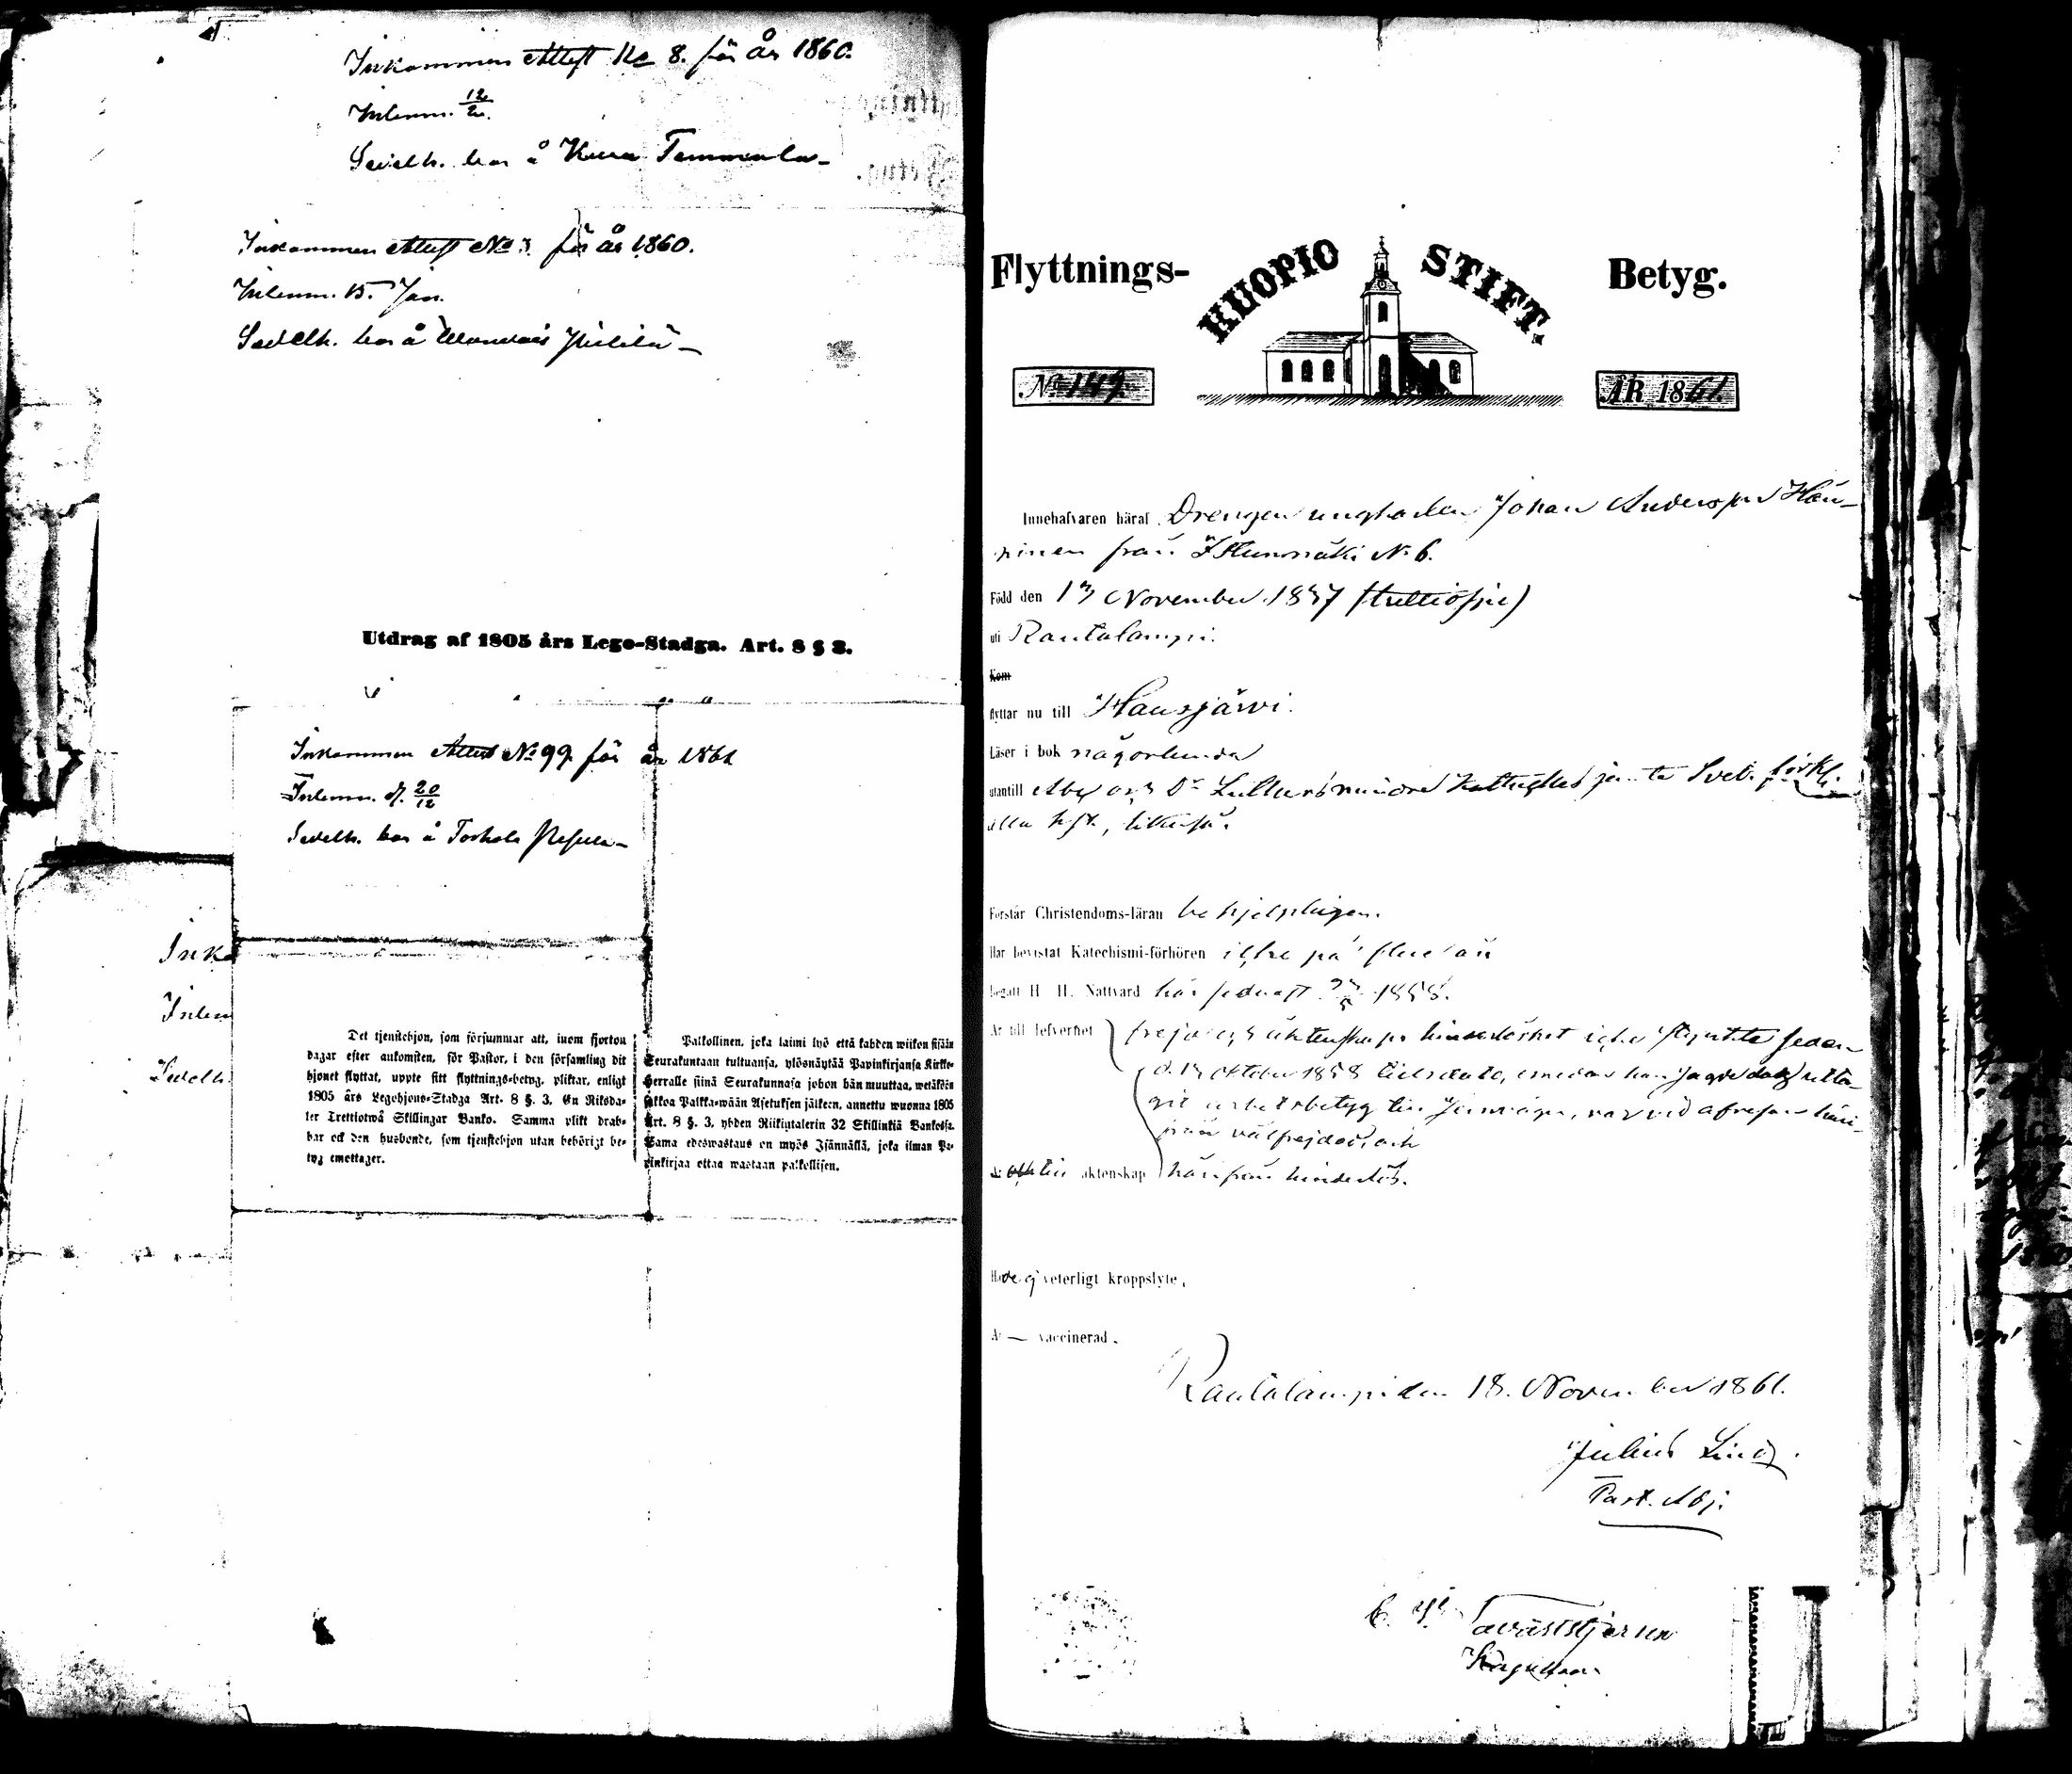 Inkommen Attest No 8. för år 1860.
Inlemn. 12/2.
Sedelh. bor å Kura Tammela
Inkommen Attest No 3. för år 1860.
Inlemn. 15. Jan.
Sedelh. bor å
Utdrag af 1805 års Lego-Stadga. Art. 8 § 3.
Inkommen Attest No 99 för år 1861
Inlemn. d. 20/12
Sedelh. bor å Torhola
Ink
Inlem
Sedelh.
Det tjenstehjon, som försummar att, inom fjorton
dagar efter ankomsten, för Pastor, i den församling dit
hjonet flyttat, uppte sitt flyttnings-betyg, pliktar, enligt
1805 års Legohjons-Stadga Art. 8 §. 3. En Riksda-
ler Trettiotwå Skillingar Banko. Samma plikt drab-
bar ock den husbonde, som tjenstehjon utan behörigt be-
tyg emottager.
Palkollinen, joka laimi lyö että kahden wiikon sisään
Seurakuntaan tultuansa, ylösnäytää Papinkirjansa Kirkko-
herralle siinä Seurakunnasa johon hän muuttaa, wetäköön
sakkoa Palkka-wään Asetuksen jälkeen, annettu wuonna 1805
Art. 8 §. 3, yhden Riikintalerin 32 Skillinkiä Bankossa.
Sama edeswastaus on myös Isännällä, joka ilman Pa-
pinkirjaa ottaa wastaan palkollisen.
Flyttnings- KUOPIO STIFT. Betyg.
No 149. ÅR 1861.
Innehafvaren häraf Drengen ungkarlen Johan Andersson Hän-
ninen från Istunmäki No 6.
Född den 13 November 1837 (trettiosju)
uti Rautalampi.
Kom
flyttar nu till Hausjärvi.
Läser i bok någorlunda
utantill Abc och Dr Lutters mindre Katekes jemte Sveb. förkl.
alla hfst.,
Förstår Christendoms-läran behjelpligen.
Har bevistat Katechismi-förhören icke på flere år
Begått H. H. Nattvard här sednast 1858.
Är till lefvernet frejd och äktenskaps hinderlöshet icke styrkte sedan
d. 13 Oktober 1858
arbetsbetyg
välfrejdad, och
till äktenskap härifrån hinderlös.
Hade ej veterligt kroppslyte.
Är — vaccinerad.
Rautalampi den 18. November 1861.
Julius Lind.
Past. Adj.
Tavaststjerna